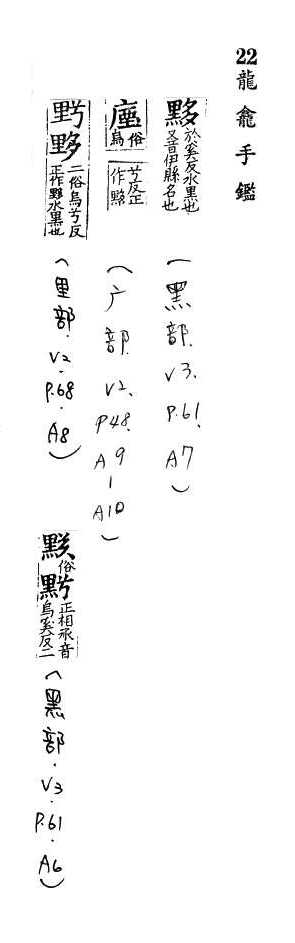 22龍龕手鑑
黟 於奚反水黑也又音伊縣名也
(黑部.V3.P.61.A7)
俗烏兮反正作黟
(广部.V2.P48.A9-A10)
野 二俗烏兮反正作黟水黑也
(里部.V2.P.68.A8)
俗正相承音烏奚反二
(黑部.V3.P.61.A6)